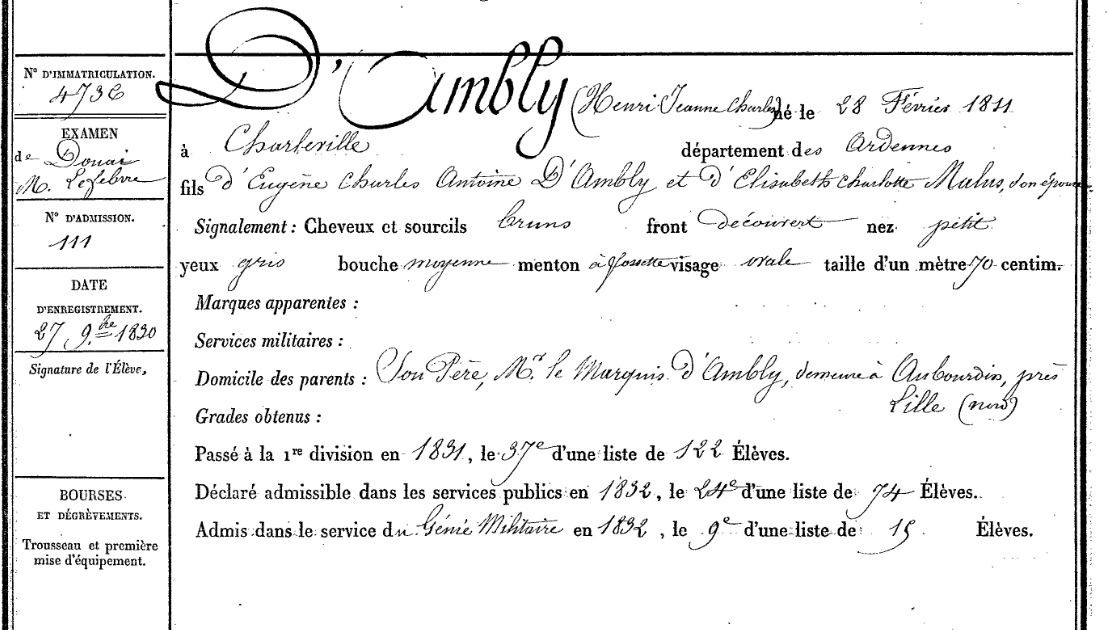 D'Ambly (Henri Jeanne Charles) né le 28 Février 1811
à Charleville département des Ardennes
fils d'Eugène Charles Antoine D'Ambly et d'Elisabeth Charlotte Malus, son épouse
Signalement : Cheveux et sourcils bruns front découvert nez petit
yeux gris bouche moyenne menton à fossette visage ovale taille d'un mètre 70 centim.
Marques apparentes :
Services militaires :
Domicile des parents : Son Père, Mr le Marquis d'Ambly, demeure à Aubourdin, près
Lille (nord)
Grades obtenus :
Passé à la 1re division en 1831, le 37e d'une liste de 122 Élèves.
Déclaré admissible dans les services publics en 1832, le 24e d'une liste de 74 Élèves.
Admis dans le service du Génie Militaire en 1832, le 9e d'une liste de 15 Élèves.
N° D'IMMATRICULATION.
EXAMEN
de Douai
M. Lefebvre
N° D'ADMISSION.
111
DATE
D'ENREGISTREMENT.
27 9bre 1830
Signature de l'Élève,
BOURSES
ET DÉGRÈVEMENTS.
Trousseau et première
mise d'équipement.